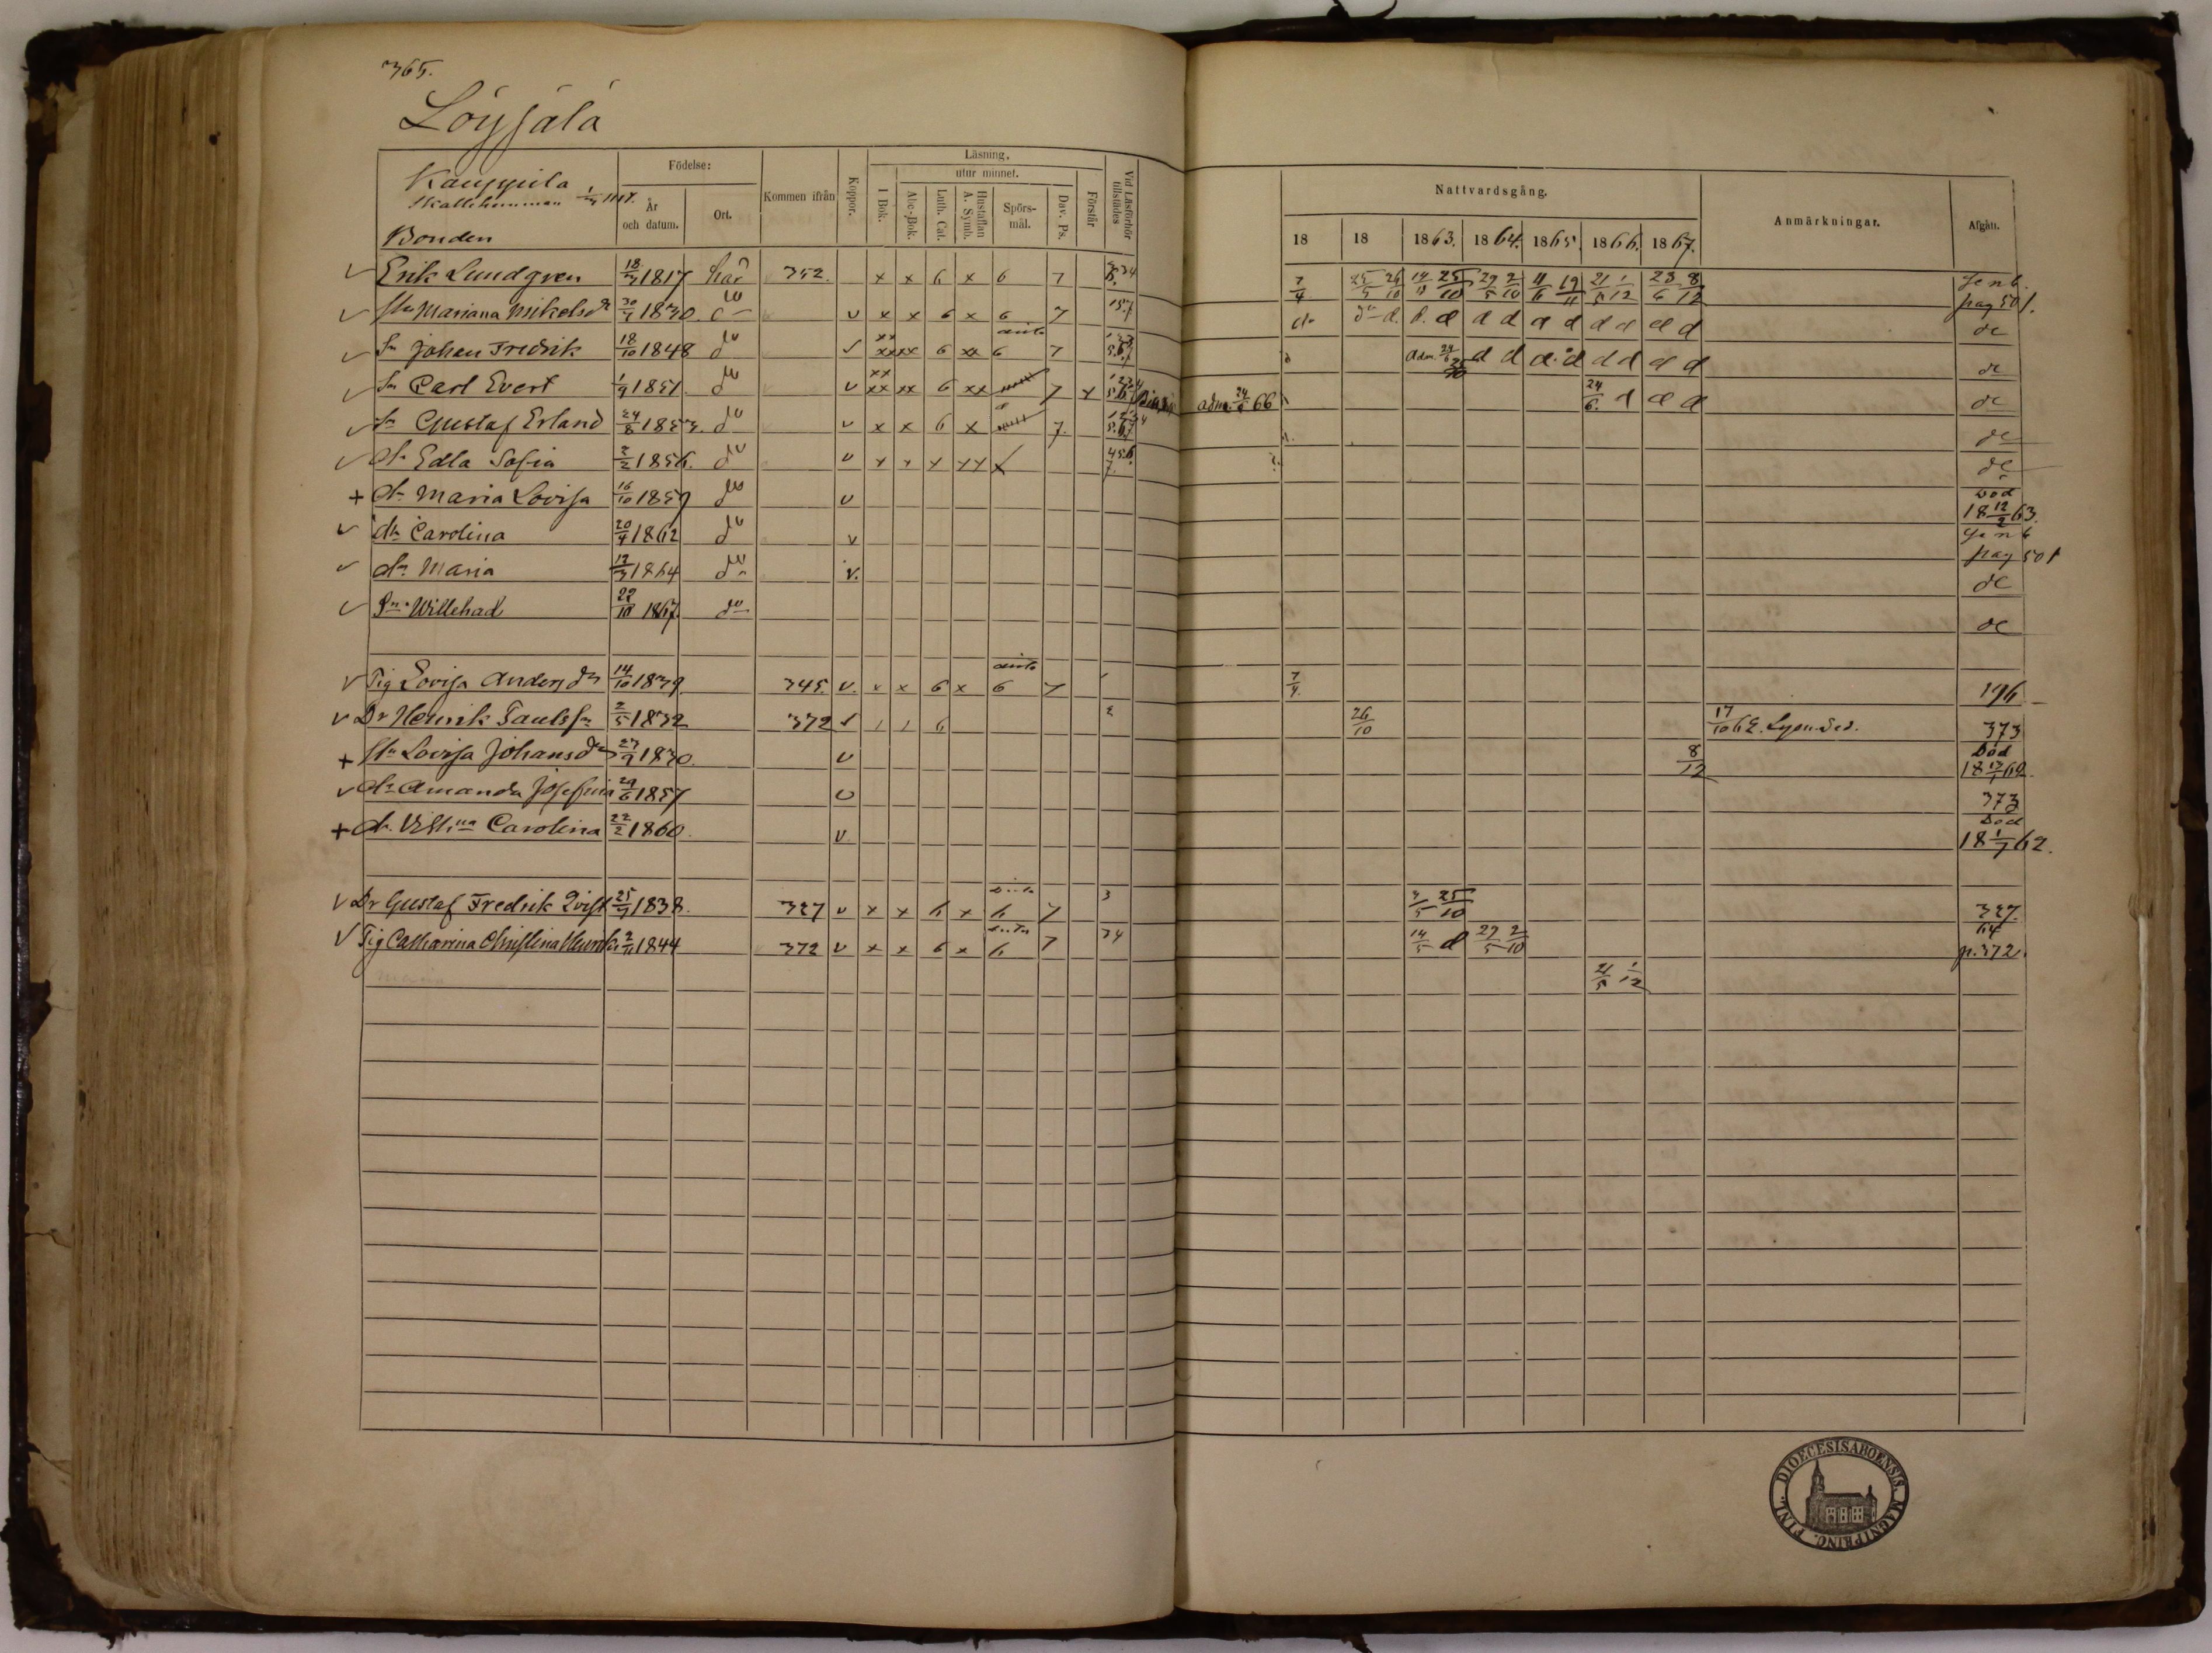 365.
Löyjälä
Kauppila
Skattehemman
Bonden
Födelse:
År och datum.
Ort.
Kommen ifrån
Koppor.
Läsning.
I Bok.
utur minnet.
Abc-Bok.
Luth. Cat.
Hustaflan A. Symb.
Spörs-mål.
Dav. Ps.
Förstår
Vid Läsförhör tillstädes
Nattvardsgång.
18 18 1863. 1864. 1865. 1866. 1867.
Anmärkningar.
Afgått.
Erik Lundgren 18/3 1817 här 352. x x 6 x 6 7 7/4 25/5 26/10 14/5 25/10 29/5 2/10 11/6 19/11 21/5 1/12 23/6 8/12
Hu Mariana Mikelsdr 30/7 1830 do v x x 6 x 6 7 do d d d d d d d d d pag 501.
Sn Johan Fredrik 18/10 1848 do v xx xxxx 6 xx 6 7 adm. 24/6 d d d d d d d d
Sn Carl Evert 1/9 1851 do v xx xx xx 6 xx 7 x adm. 24/6 66 24/6. d d d
Sn Gustaf Erland 24/8 1853. do v x x 6 x 7.
dr Edla Sofia 2/2 1856. do v x x x xx 456. 7.
+ dr Maria Lovisa 16/10 1859 do v Död 18 12/2 63.
dr Carolina 20/4 1862 do v pag 501
dr Maria 12/3 1864 do v.
Sn Willehad 22/10 1867. do
Pig Lovisa Andersdr 14/10 1839 345. v. x x 6 x 6 7 7/4. 196
Dr Henrik Paulsson 2/5 1832 372 6 2 26/10 17/10 62. 373
+ Hu Lovisa Johansdr 27/9 1830. v 8/12 Död
dr Amanda Josefina 29/6 1857 v 373
+ dr Carolina 22/2 1860. v. Död 18 1/7 62.
Dr Gustaf Fredrik Qvist 25/7 1838. 327 v x x 6 x 6 7 3 3/5 25/10 327
Pig Catharina Christina 2/11 1844 372 v x x 6 x 6 7 34 14/5 d 29/5 2/10 64 p. 372.
21/5 1/12
DIOECESIS ABOENSIS. MAGNI PRINC. FINL.